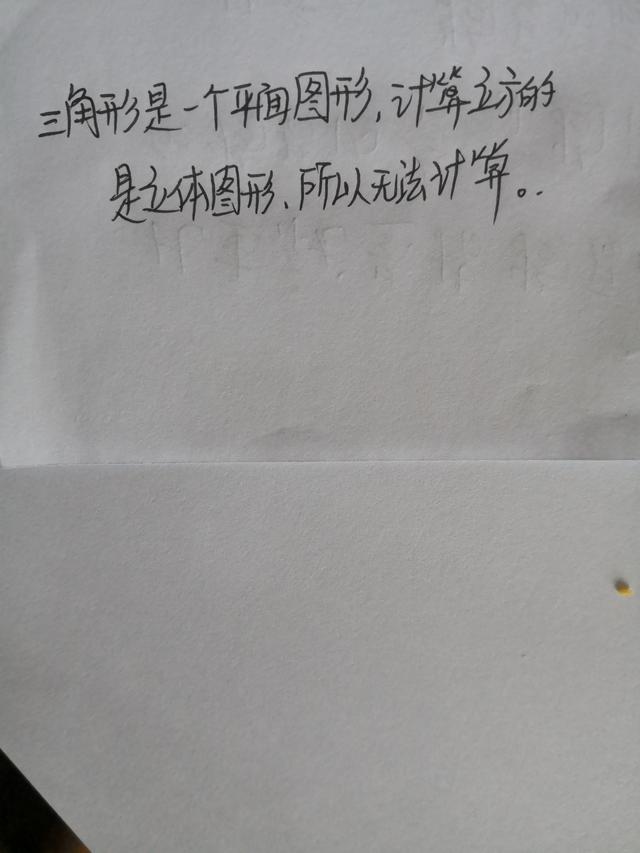 三角形是一个平面图形,计算立方的
是立体图形、所以无法计算。.